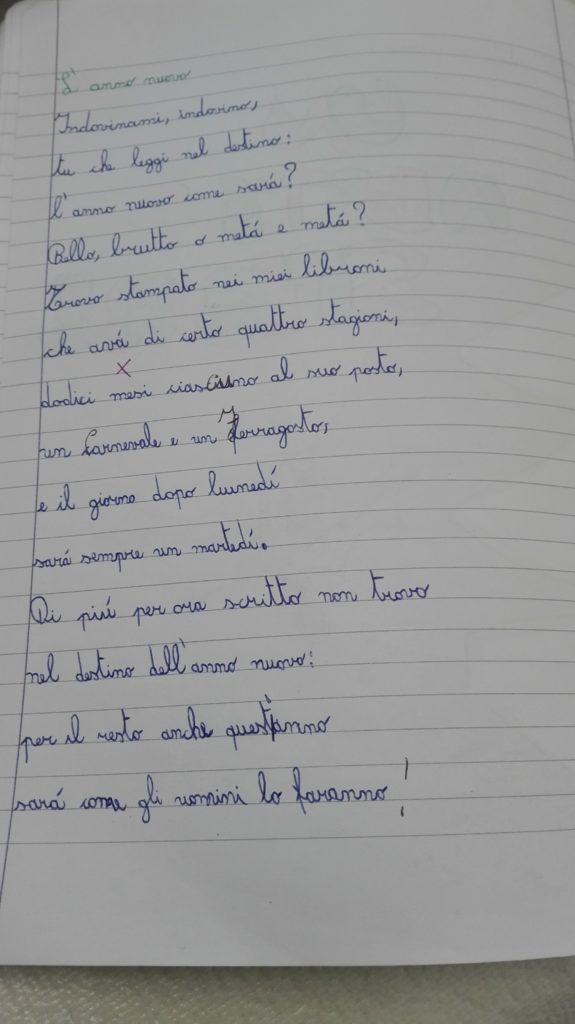 L'anno nuovo
Indovinami, indovino,
tu che leggi nel destino:
l'anno nuovo come sará?
Bello, brutto o metá e metá?
Trovo stampato nei miei libroni
che avá di certo quattro stagioni,
x
dodici mesi ciascuno al suo posto,
un Carnevale e un Ferragosto,
e il giorno dopo luunedí
sará sempre un martedí.
Di piú per ora scritto non trovo
nel destino dell'anno nuovo:
per il resto anche quest'anno
sará come gli uomini lo faranno!